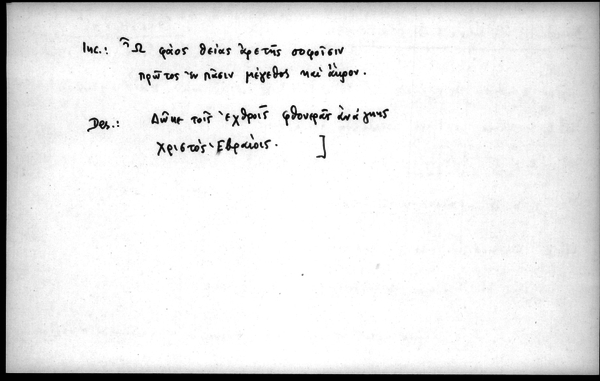 Inc.: Ὦ φάος θείας ἀρετῆς σοφοῖσιν
πρῶτος ἐν πᾶσιν μέγεθος καὶ ἄκρον.
Des.: Δῶκε τοῖς ἐχθροῖς φθονερᾶς ἀνάγκης
Χριστὸς Ἑβραίοις. ]